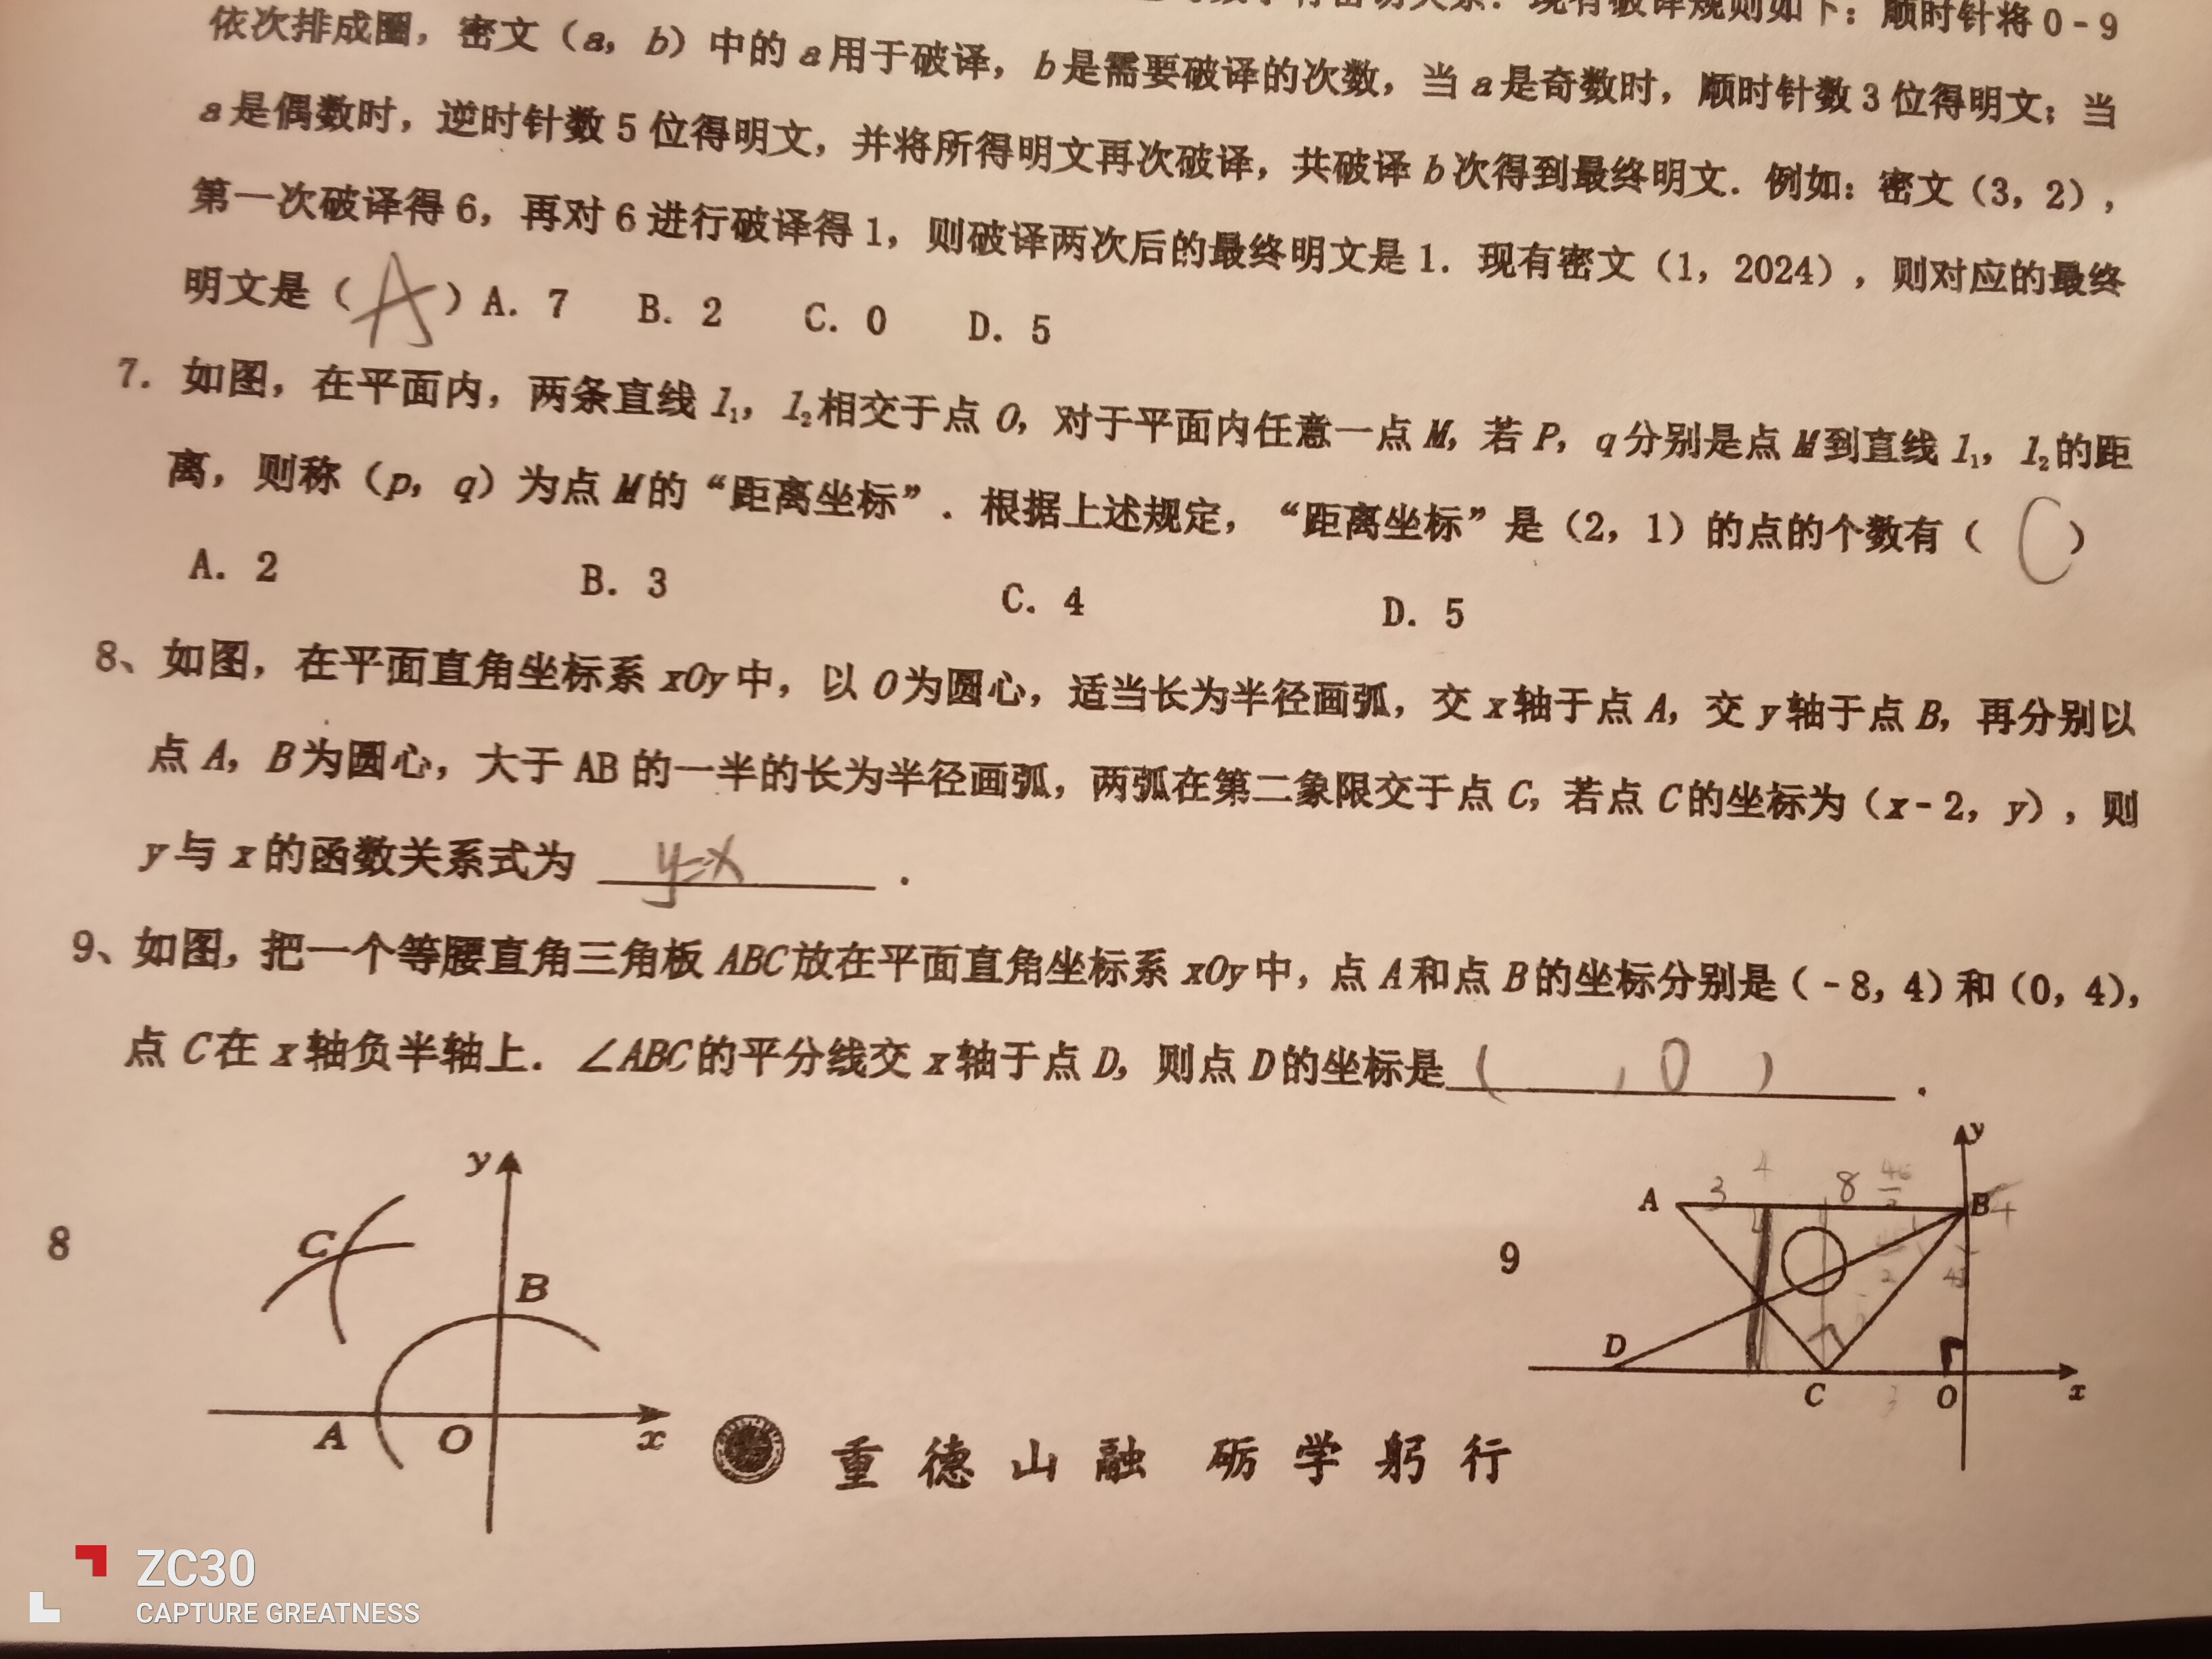 现有破译规则如下：顺时针将0-9
依次排成圈，密文（a，b）中的a用于破译，b是需要破译的次数，当a是奇数时，顺时针数3位得明文；当
a是偶数时，逆时针数5位得明文，并将所得明文再次破译，共破译b次得到最终明文．例如：密文（3，2），
第一次破译得6，再对6进行破译得1，则破译两次后的最终明文是1．现有密文（1，2024），则对应的最终
明文是（ A ）A．7 B．2 C．0 D．5
7．如图，在平面内，两条直线l₁，l₂相交于点O，对于平面内任意一点M，若P，q分别是点M到直线l₁，l₂的距
离，则称（p，q）为点M的“距离坐标”．根据上述规定，“距离坐标”是（2，1）的点的个数有（ C ）
A．2 B．3 C．4 D．5
8、如图，在平面直角坐标系xOy中，以O为圆心，适当长为半径画弧，交x轴于点A，交y轴于点B，再分别以
点A，B为圆心，大于AB的一半的长为半径画弧，两弧在第二象限交于点C，若点C的坐标为（x-2，y），则
y与x的函数关系式为 y=x ．
9、如图，把一个等腰直角三角板ABC放在平面直角坐标系xOy中，点A和点B的坐标分别是（-8，4）和（0，4），
点C在x轴负半轴上．∠ABC的平分线交x轴于点D，则点D的坐标是 ( , 0 ) ．
8
y
C
B
A O x
9
y
A 3 4 8 B 4
D
C O x
重德山融 砺学躬行
ZC30
CAPTURE GREATNESS